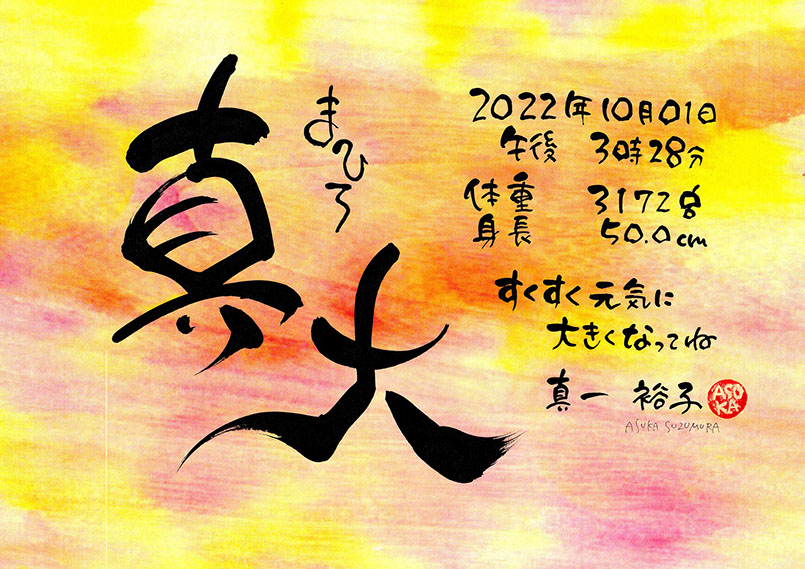 真大
まひろ
2022年10月01日
午後 3時28分
体重 3172g
身長 50.0cm
すくすく元気に
大きくなってね
真一 裕子
ASUKA
ASUKA SUZUMURA